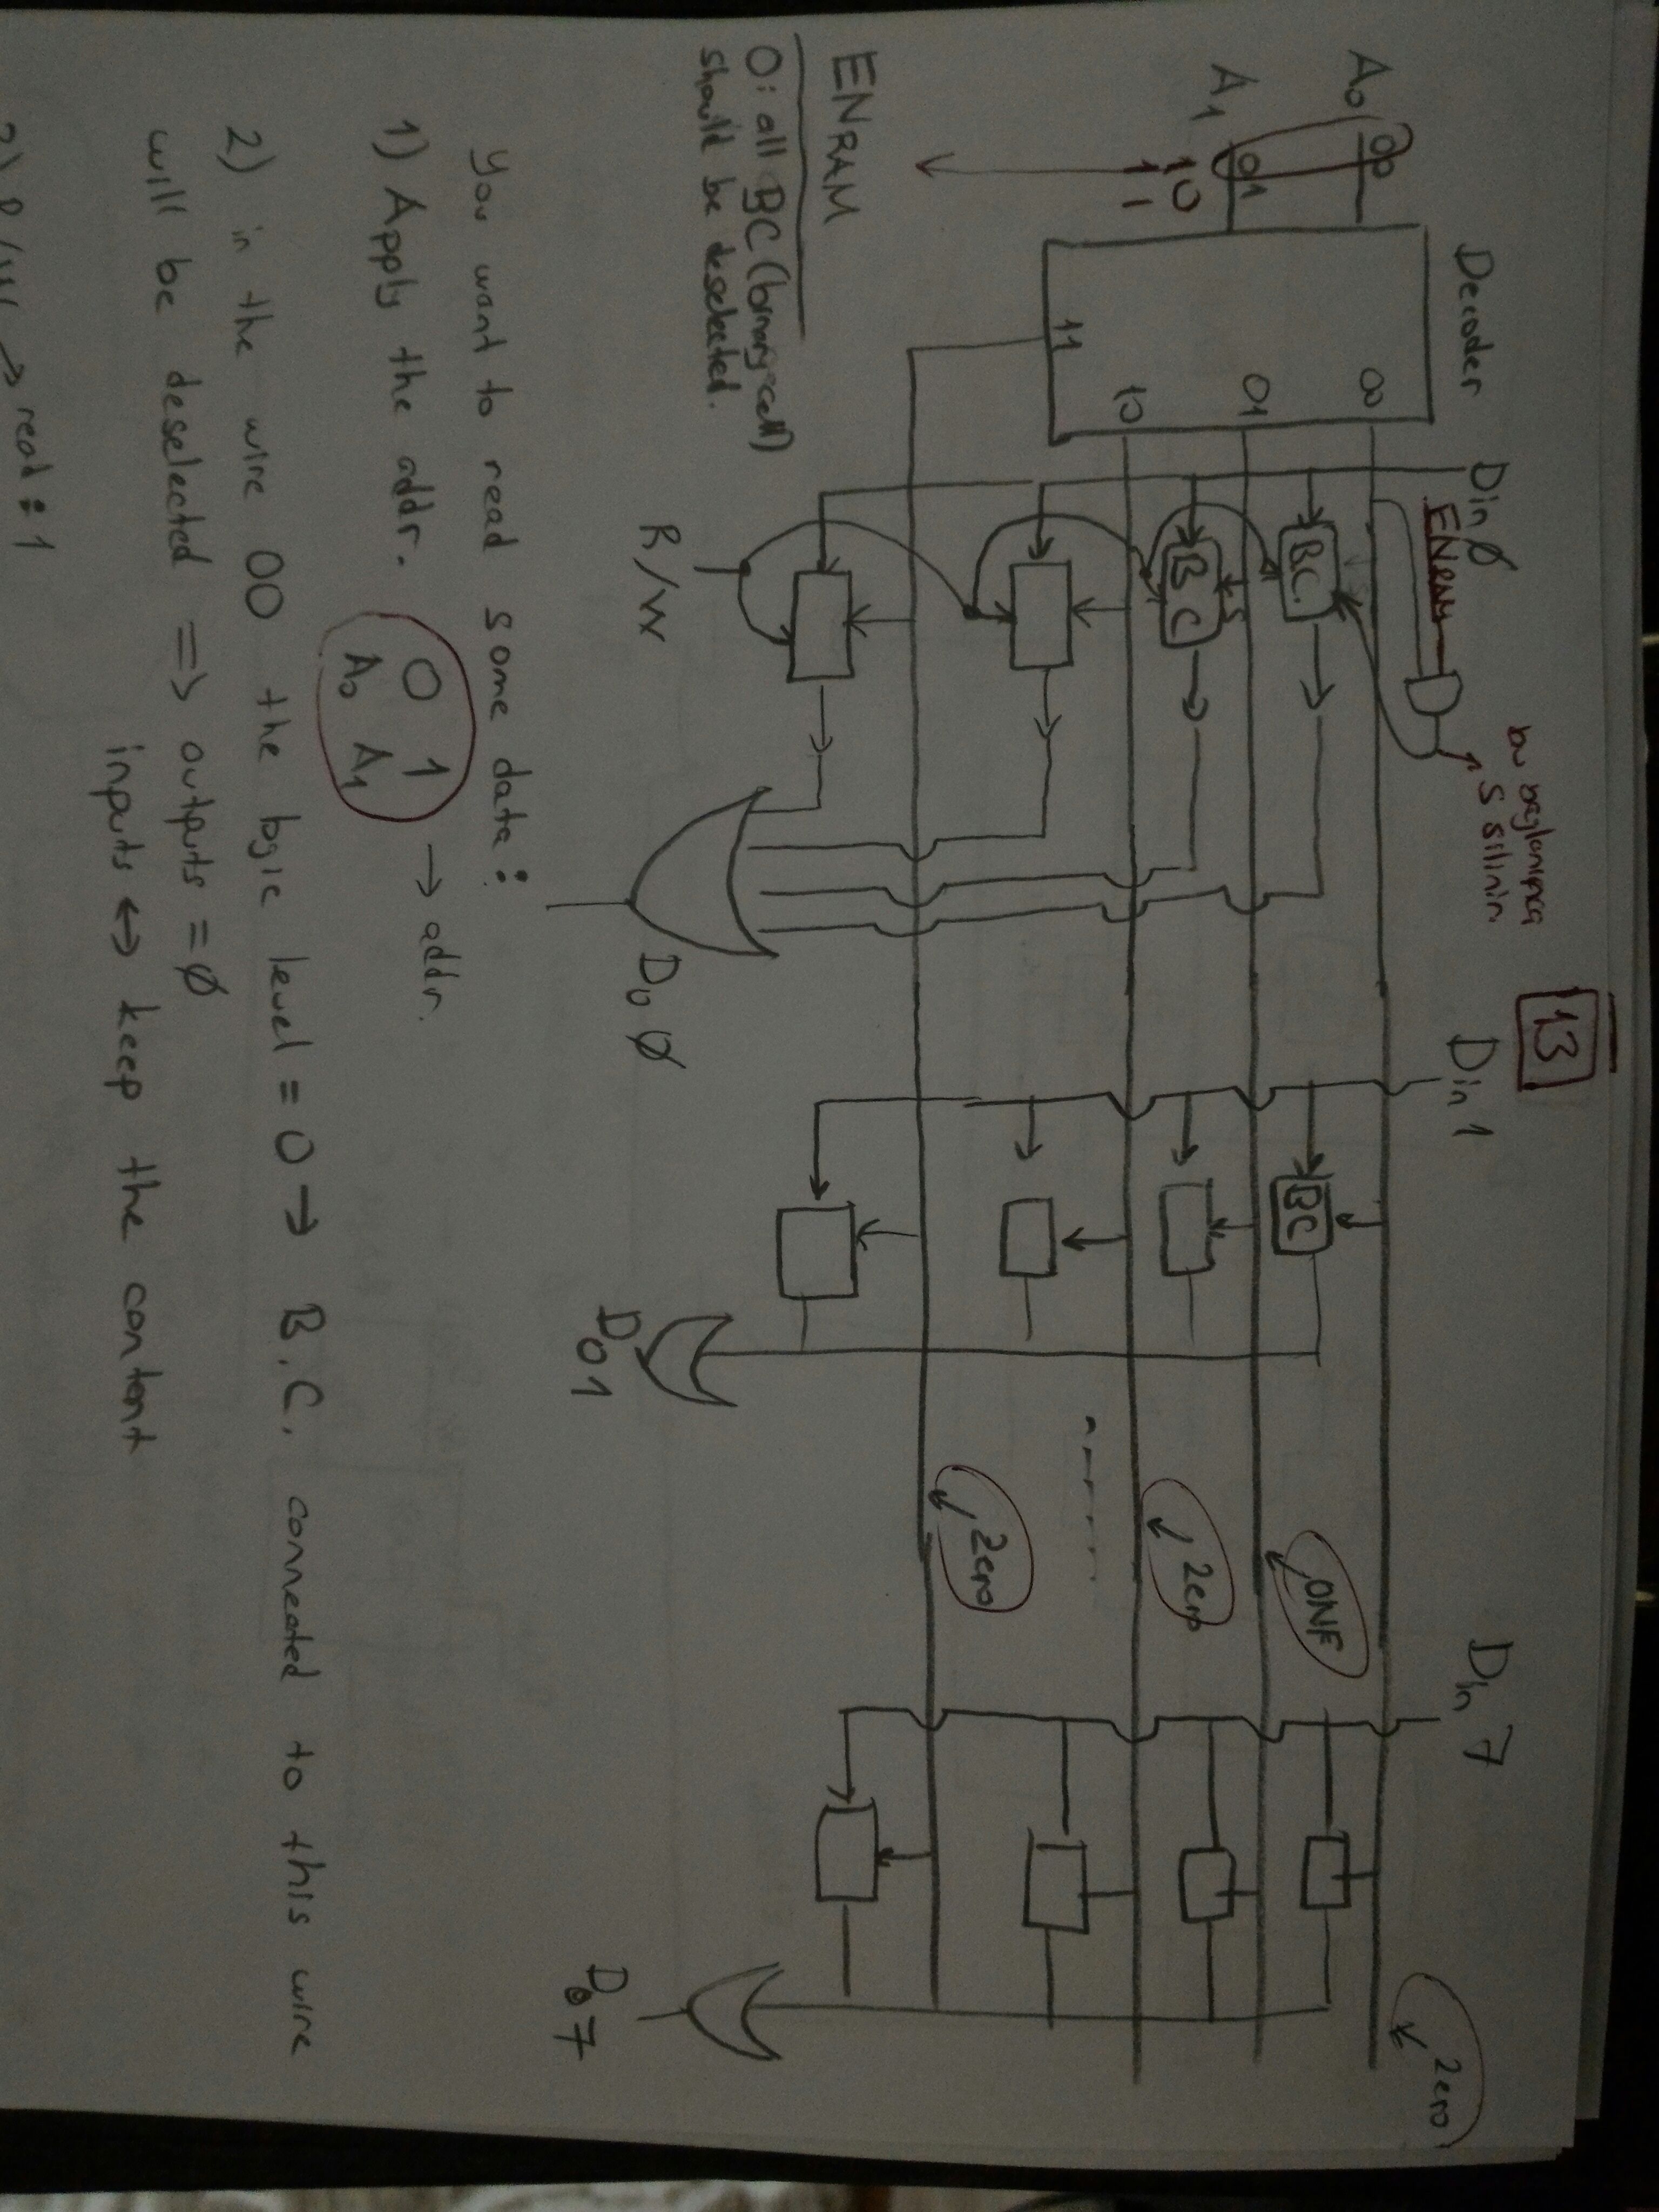 13
bu bağlanınca
S silinir.
Decoder
Din Ø
ENRAM
Din 1
Din 7
Zero
A0
00
00
B.C.
BC
ONE
A1
01
01
S
B C
Zero
10
11
10
11
Zero
ENRAM
0: all BC (binary cell)
should be deselected.
R/W
Do Ø
Do 1
Do 7
You want to read some data:
1) Apply the addr. 0 1 → addr.
A0 A1
2) in the wire 00 the logic level = 0 → B.C. connected to this wire
will be deselected => outputs = Ø
inputs ↔ keep the content
3) R/W → read : 1